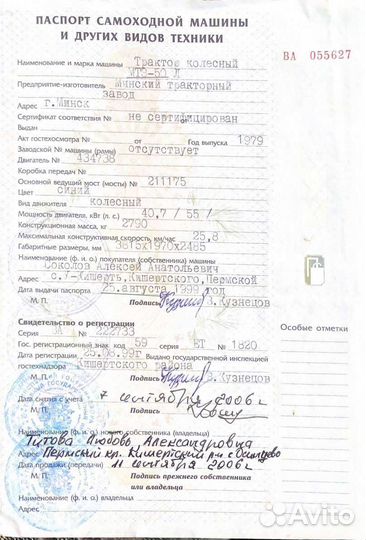 ПАСПОРТ САМОХОДНОЙ МАШИНЫ
И ДРУГИХ ВИДОВ ТЕХНИКИ
ВА 055627
Наименование и марка машины Трактор колесный
МТЗ-50 Л
Предприятие-изготовитель Минский тракторный
завод
Адрес г.Минск
Сертификат соответствия № не сертифицирован
Выдан
Акт гостехосмотра № от Год выпуска 1979
Заводской № машины (рамы) отсутствует
Двигатель № 434738
Коробка передач №
Основной ведущий мост (мосты) № 211175
Цвет синий
Вид движителя колесный
Мощность двигателя, кВт (л. с.) 40,7 / 55 /
Конструкционная масса, кг 2790
Максимальная конструктивная скорость, км/час 25,8
Габаритные размеры, мм 3815х1970х2485
Наименование (ф. и. о.) покупателя (собственника) машины
Соколов Алексей Анатольевич
Адрес с.У-Кишерть, Кишертского, Пермской
Дата выдачи паспорта 25.августа 1999 год
М. П. Подпись В.Кузнецов
Свидетельство о регистрации
Серия № 222733
Гос. регистрационный знак код 59 серия ЕТ № 1820
Дата регистрации 25.08.99г Выдано государственной инспекцией
гостехнадзора Кишертского района
М. П. Подпись В.Кузнецов
Дата снятия с учета 7 сентября 2006 г
М. П. Подпись
Наименование (ф. и. о.) нового собственника (владельца)
Титова Любовь Александровна
Адрес Пермский кр. Кишертский р-н с Осинцево
Дата продажи (передачи) 11 сентября 2006 г
М. П. Подпись прежнего собственника
или владельца
Наименование (ф. и. о.) собственника (владельца)
Адрес
Особые отметки
Avito